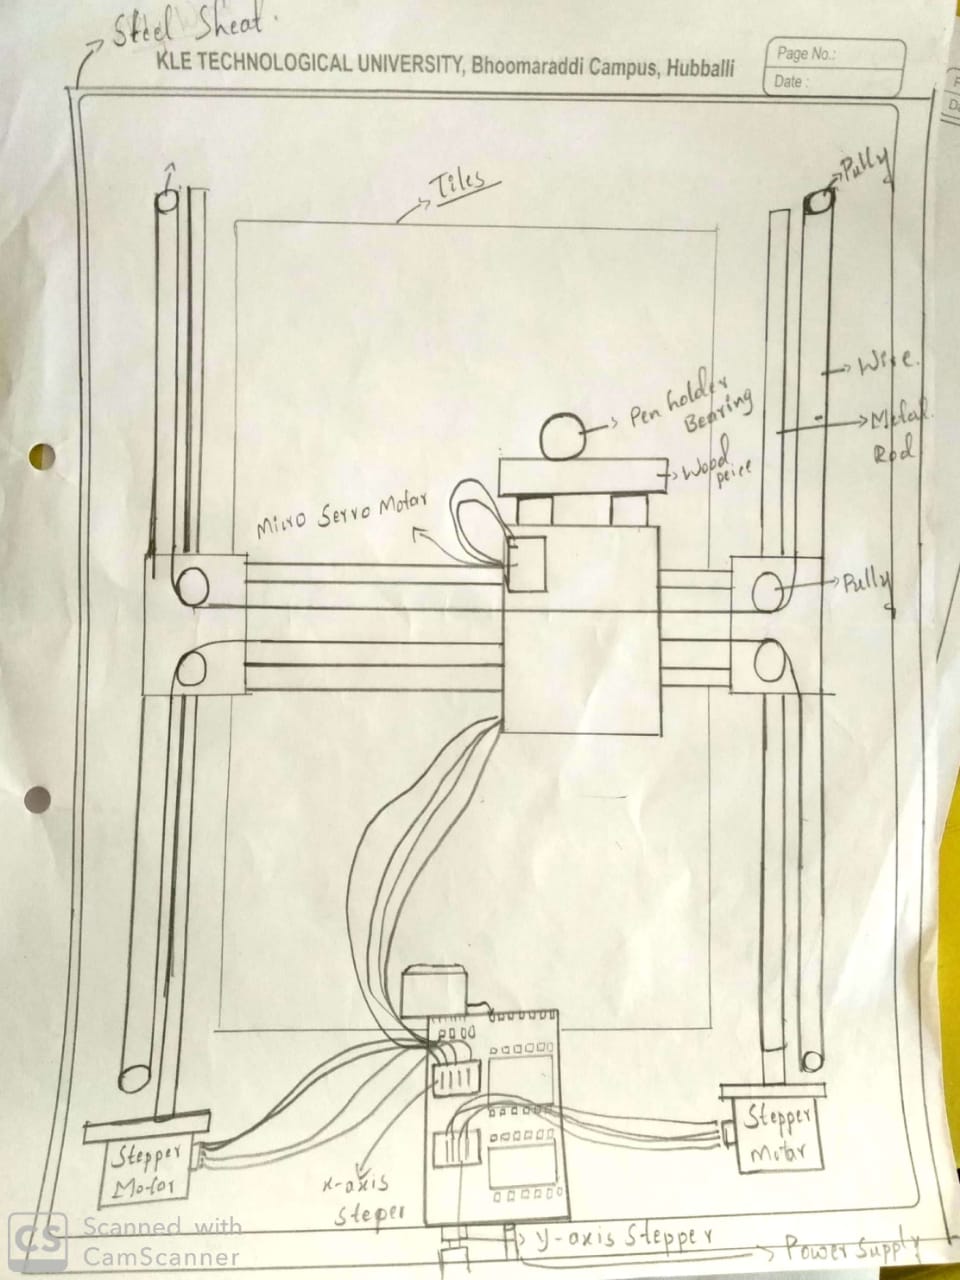 Steel Sheat.
KLE TECHNOLOGICAL UNIVERSITY, Bhoomaraddi Campus, Hubballi
Page No.:
Date :
Tiles
Pully
Wire.
Metal
Rod
Pen holder
Bearing
Wood
peice
Micro Servo Motar
Pully
Stepper
Motor
Stepper
Motar
x-axis
Steper
y-axis Stepper
Power Supply
CS
Scanned with
CamScanner